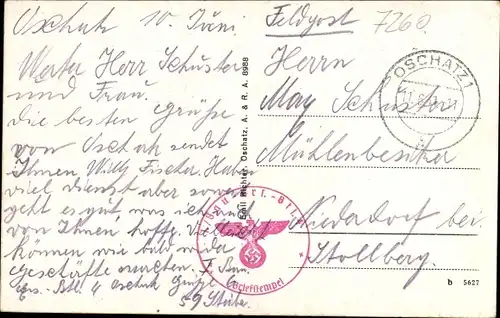 Oschatz 10. Juni
Werter Herr Schuster
und Frau.
Die besten Grüße
von Oschatz sendet
Ihnen, Willy Fischer. Haben
viel Dienst aber sonst
geht es gut, was ich auch
von Ihnen hoffe. Vielleicht
können wir bald wieder
Geschäfte machen. F.
Ers. Btl. 4 Oschatz
59 Stube.
Emil Richter, Oschatz, A. & R. A. 8988
Feldpost
7260
OSCHATZ 1
Herrn
Max Schuster
Mühlenbesitzer
Niederdorf bei
Stollberg.
Briefstempel
b 5627